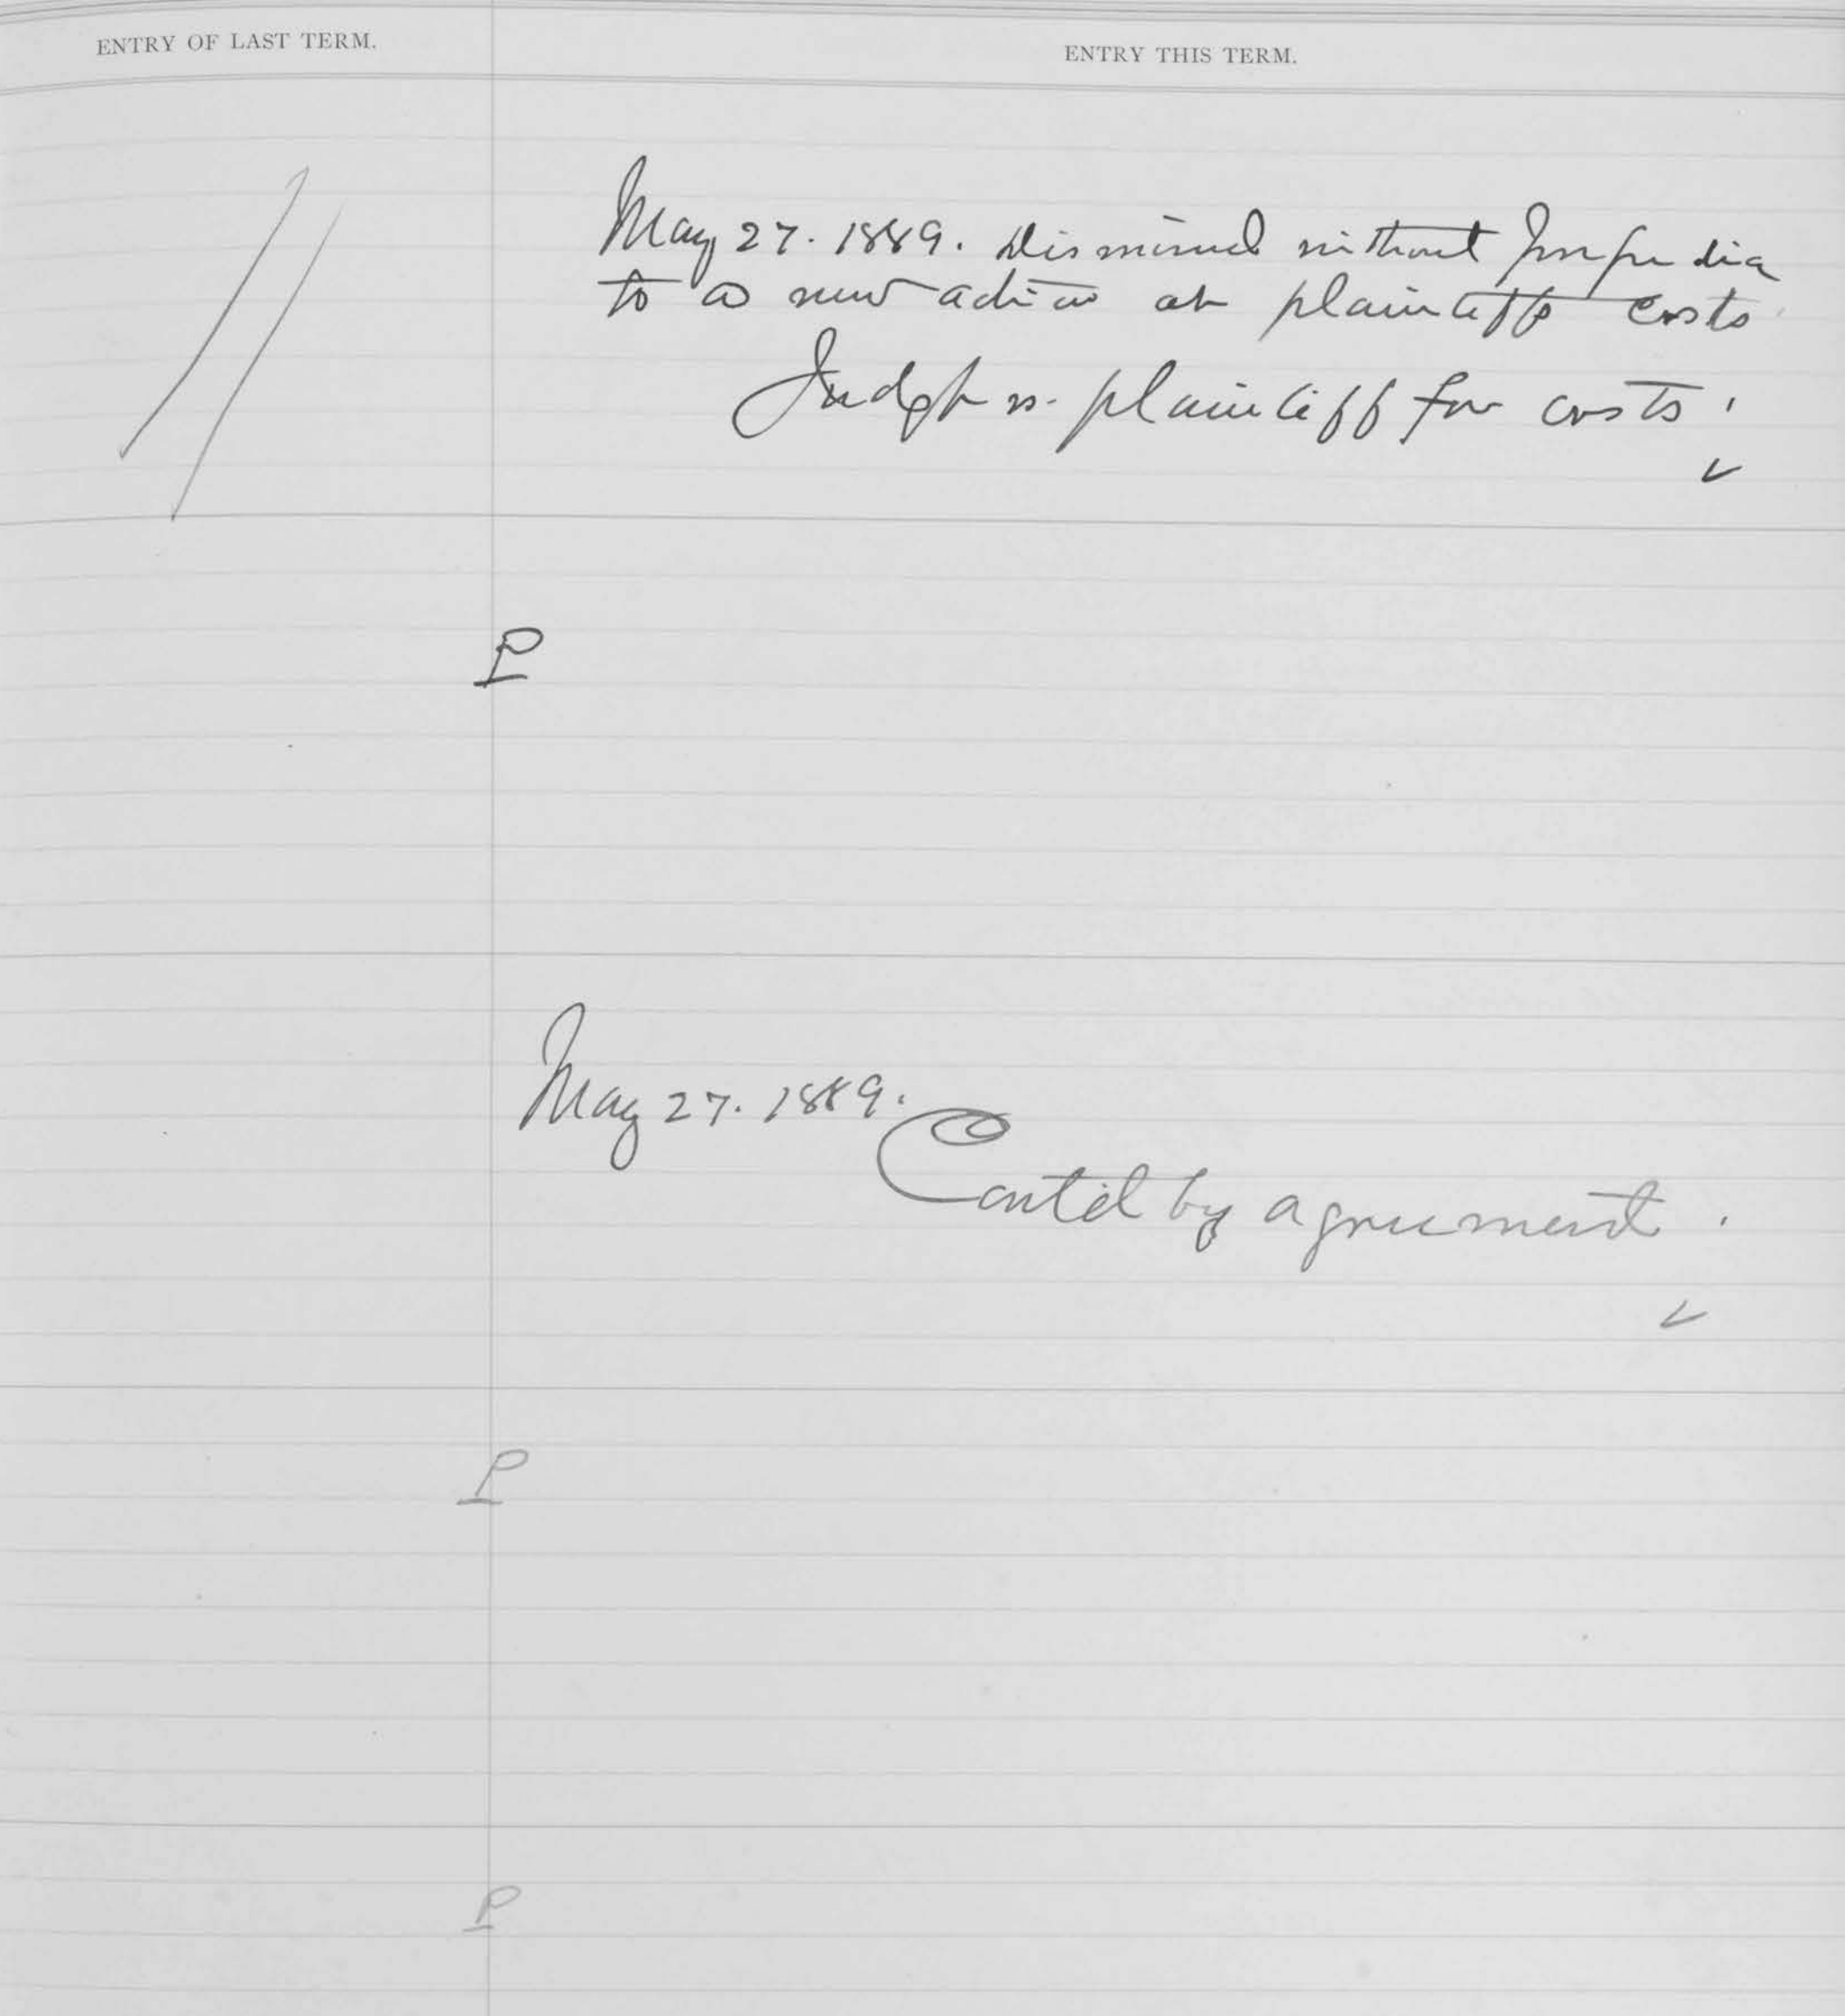 ENTRY OF LAST TERM.
ENTRY THIS TERM.
May 27. 1889. Dismissed without
to a new action at plaintiffs costs
Judgt vs. plaintiff for costs.
P
May 27. 1889.
Contd by agreement.
P
P